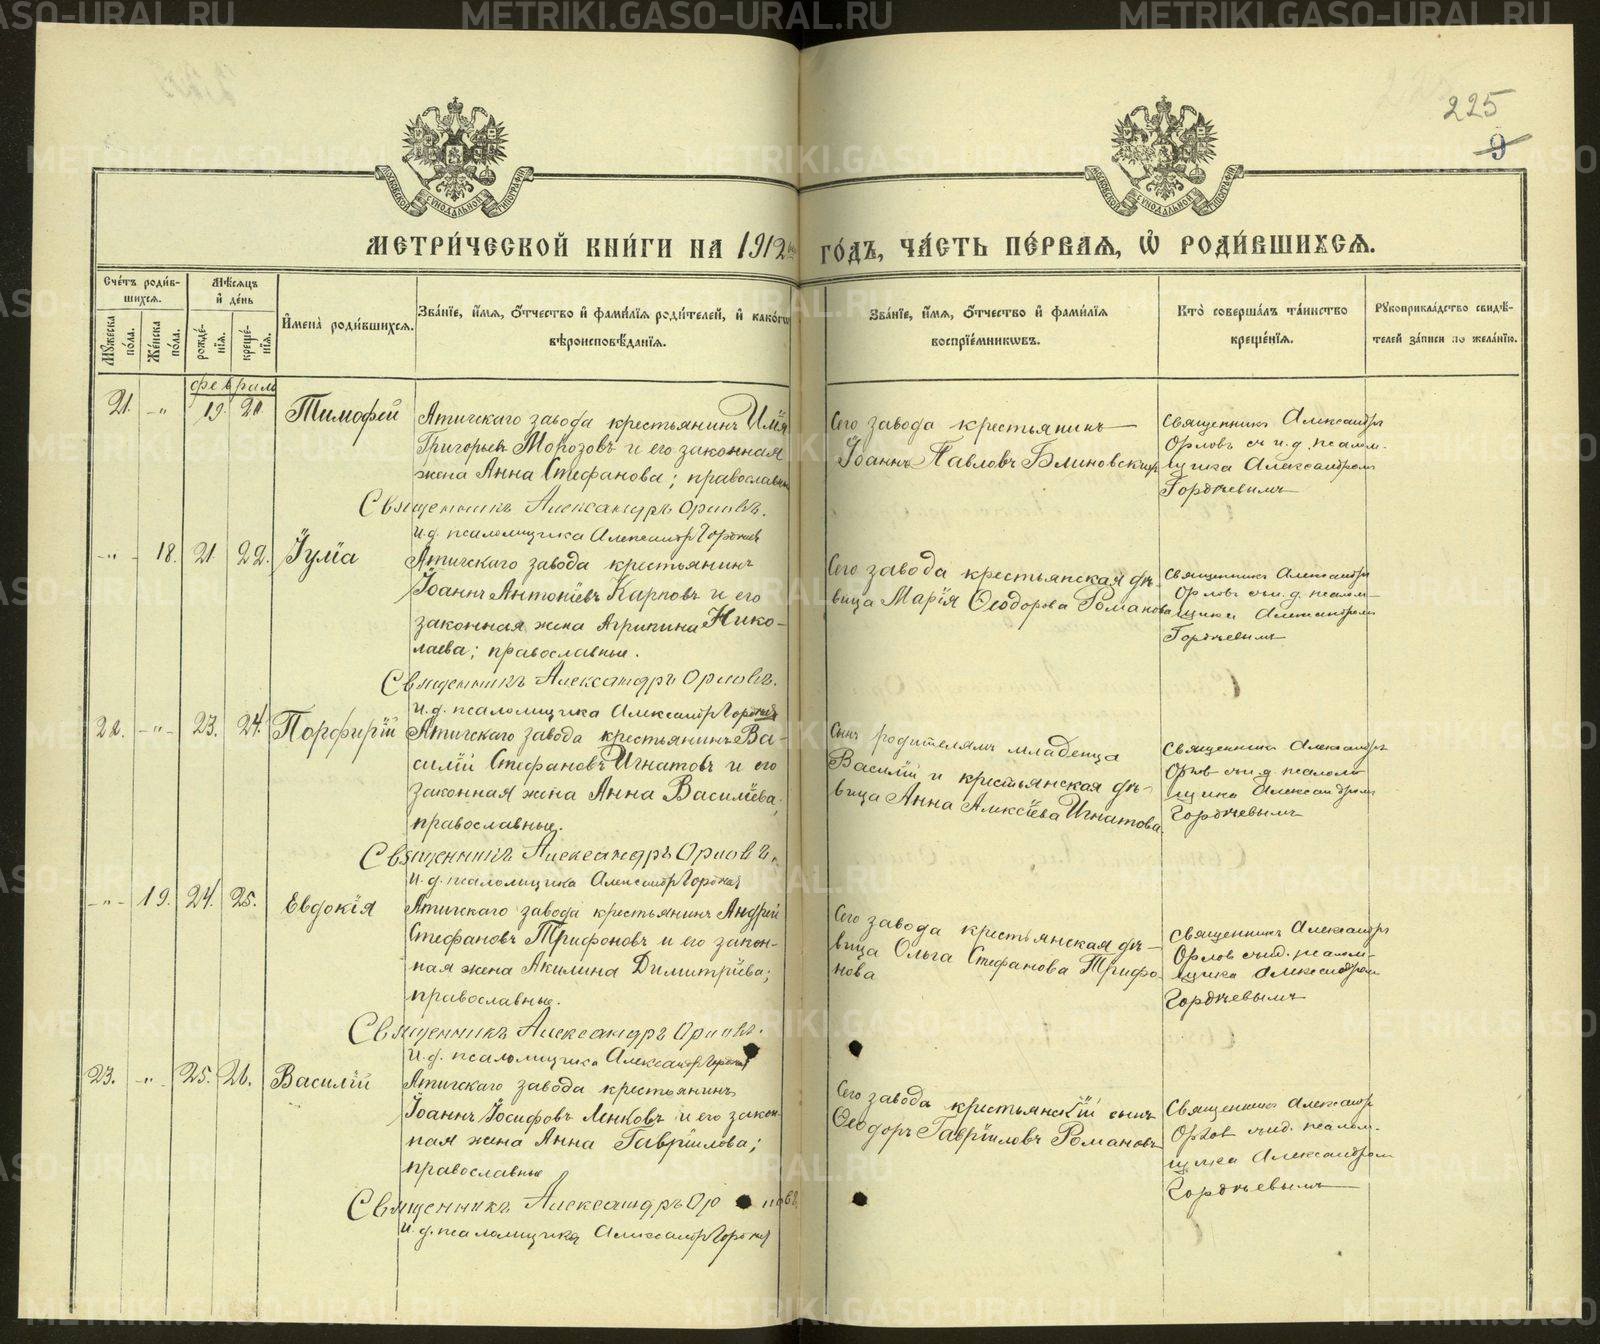 METRIKI.GASO-URAL.RU
225
9
МОСКОВСКОЙ СѴНОДАЛЬНОЙ ТИПОГРАФІИ
МОСКОВСКОЙ СѴНОДАЛЬНОЙ ТИПОГРАФІИ
МЕТРИ́ЧЕСКОЙ КНИ́ГИ НА 1912
ГО́ДЪ, ЧА́СТЬ ПЕ́РВАЯ, Ѡ҆ РОДИ́ВШИХСЯ.
Сче́тъ роди́в-
шихся.
Мꙋ́жеска по́ла.
Же́нска по́ла.
Мѣ́сяцъ и҆ де́нь
рожде́-нїя.
креще́-нїя.
И҆мена̀ роди́вшихся.
Зва́нїе, и҆́мя, о҆́тчество и҆ фами́лїя роди́телей, и҆ како́гѡ
вѣроисповѣ́данїя.
Зва́нїе, и҆́мя, о҆́тчество и҆ фами́лїя
воспрїе́мникѡвъ.
Кто̀ соверша́лъ та́инство
креще́нїя.
Рꙋкоприкла́дство свидѣ́-
телей за́писи по жела́нїю.
февраль
21. -"- 19. 20. Тимофей
Атигскаго завода крестьянинъ Илія
Григорьевъ Морозовъ и его законная
жена Анна Стефанова; православные
Священникъ Александръ Орловъ.
И.д. псаломщика Александръ Гордѣевъ
Сего завода крестьянинъ
Іоаннъ Павловъ Блиновскихъ
Священникъ Александръ
Орловъ съ и.д. псалом-
щика Александромъ
Гордѣевымъ
-"- 18. 21. 22. Іулія
Атигскаго завода крестьянинъ
Іоаннъ Антоніевъ Карповъ и его
законная жена Агрипина Нико-
лаева; православные.
Священникъ Александръ Орловъ.
И.д. псаломщика Александръ Гордѣевъ
Сего завода крестьянская дѣ-
вица Марія Ѳеодорова Романова
Священникъ Александръ
Орловъ съ и.д. псалом-
щика Александромъ
Гордѣевымъ
22. -"- 23. 24. Порфирій
Атигскаго завода крестьянинъ Ва-
силій Стефановъ Игнатовъ и его
законная жена Анна Василіева;
православные.
Священникъ Александръ Орловъ.
И.д. псаломщика Александръ Гордѣевъ
Сынъ родителямъ младенца
Василій и крестьянская дѣ-
вица Анна Алексіева Игнатова.
Священникъ Александръ
Орловъ съ и.д. псалом-
щика Александромъ
Гордѣевымъ
-"- 19. 24. 25. Евдокія
Атигскаго завода крестьянинъ Андрей
Стефановъ Трифоновъ и его закон-
ная жена Акилина Димитріева;
православные.
Священникъ Александръ Орловъ.
И.д. псаломщика Александръ Гордѣевъ
Сего завода крестьянская дѣ-
вица Ольга Стефанова Трифо-
нова
Священникъ Александръ
Орловъ съ и.д. псалом-
щика Александромъ
Гордѣевымъ
23. -"- 25. 26. Василій
Атигскаго завода крестьянинъ
Іоаннъ Іосифовъ Ленковъ и его закон-
ная жена Анна Гавріилова;
православные
Священникъ Александръ Орловъ
И.д. псаломщика Александръ Гордѣевъ
Сего завода крестьянскій сынъ
Ѳеодоръ Гавріиловъ Романовъ
Священникъ Александръ
Орловъ съ и.д. псалом-
щика Александромъ
Гордѣевымъ